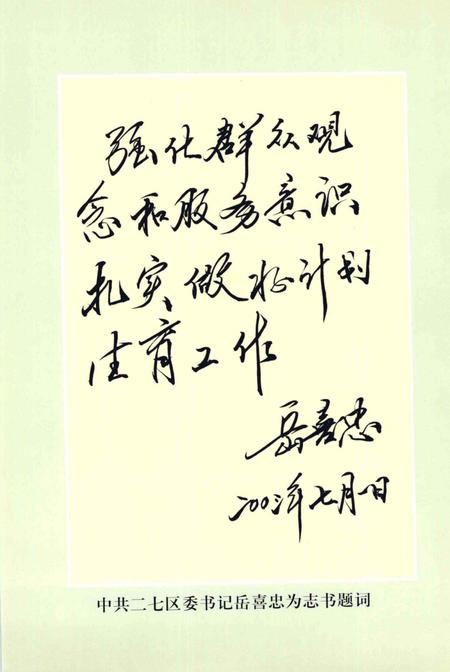 强化群众观
念和服务意识
扎实做好计划
生育工作
岳喜忠
二00三年七月一日
中共二七区委书记岳喜忠为志书题词